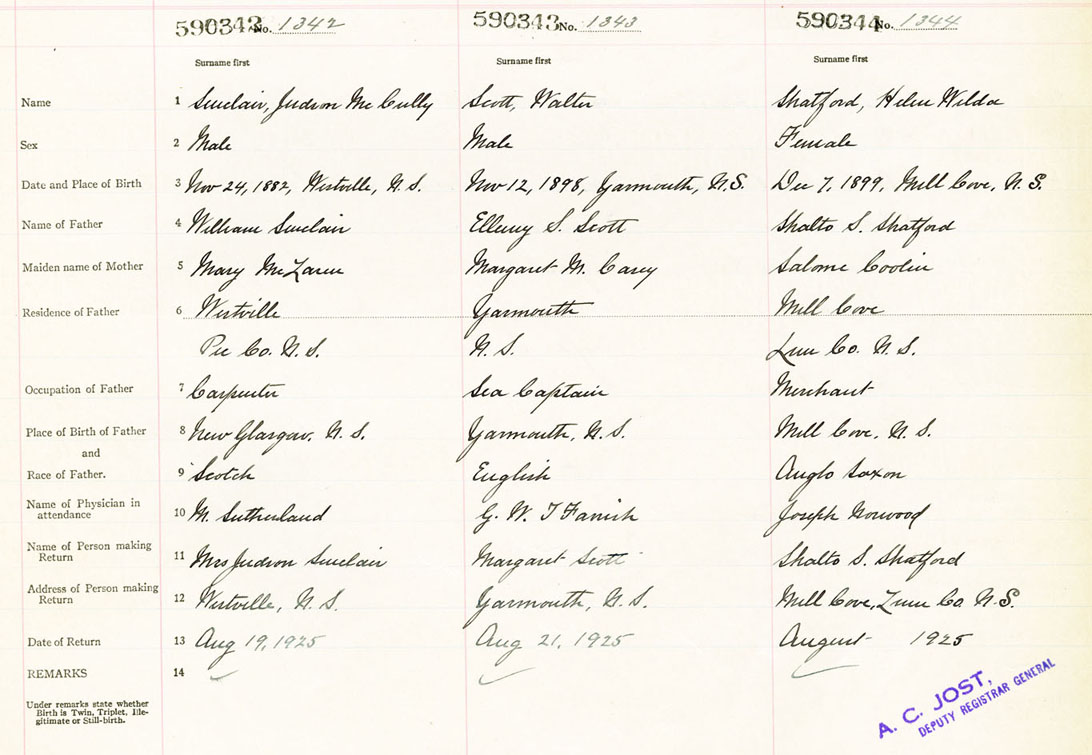 590342 No. 1342 590343 No. 1343 590344 No. 1344
Surname first Surname first Surname first
Name 1 Sinclair, Judson McCully Scott, Walter Shatford, Helen Wilda
Sex 2 Male Male Female
Date and Place of Birth 3 Nov 24, 1882, Westville, N.S. Nov 12, 1898, Yarmouth, N.S. Dec 7, 1899, Mill Cove, N.S.
Name of Father 4 William Sinclair Ellery S. Scott Shalto S. Shatford
Maiden name of Mother 5 Mary McLaren Margaret M. Carey Salome
Residence of Father 6 Westville Yarmouth Mill Cove
Pic Co. N.S. N.S. Lun Co. N.S.
Occupation of Father 7 Carpenter Sea Captain Merchant
Place of Birth of Father 8 New Glasgow, N.S. Yarmouth, N.S. Mill Cove, N.S.
and
Race of Father. 9 Scotch English Anglo Saxon
Name of Physician in
attendance 10 M. Sutherland G. W. T Farish Joseph Norwood
Name of Person making
Return 11 Mrs Judson Sinclair Margaret Scott Shalto S. Shatford
Address of Person making
Return 12 Westville, N.S. Yarmouth, N.S. Mill Cove, Lun Co. N.S.
Date of Return 13 Aug 19, 1925 Aug 21, 1925 August 1925
REMARKS 14
Under remarks state whether
Birth is Twin, Triplet, Ille-
gitimate or Still-birth.
A. C. JOST,
DEPUTY REGISTRAR GENERAL